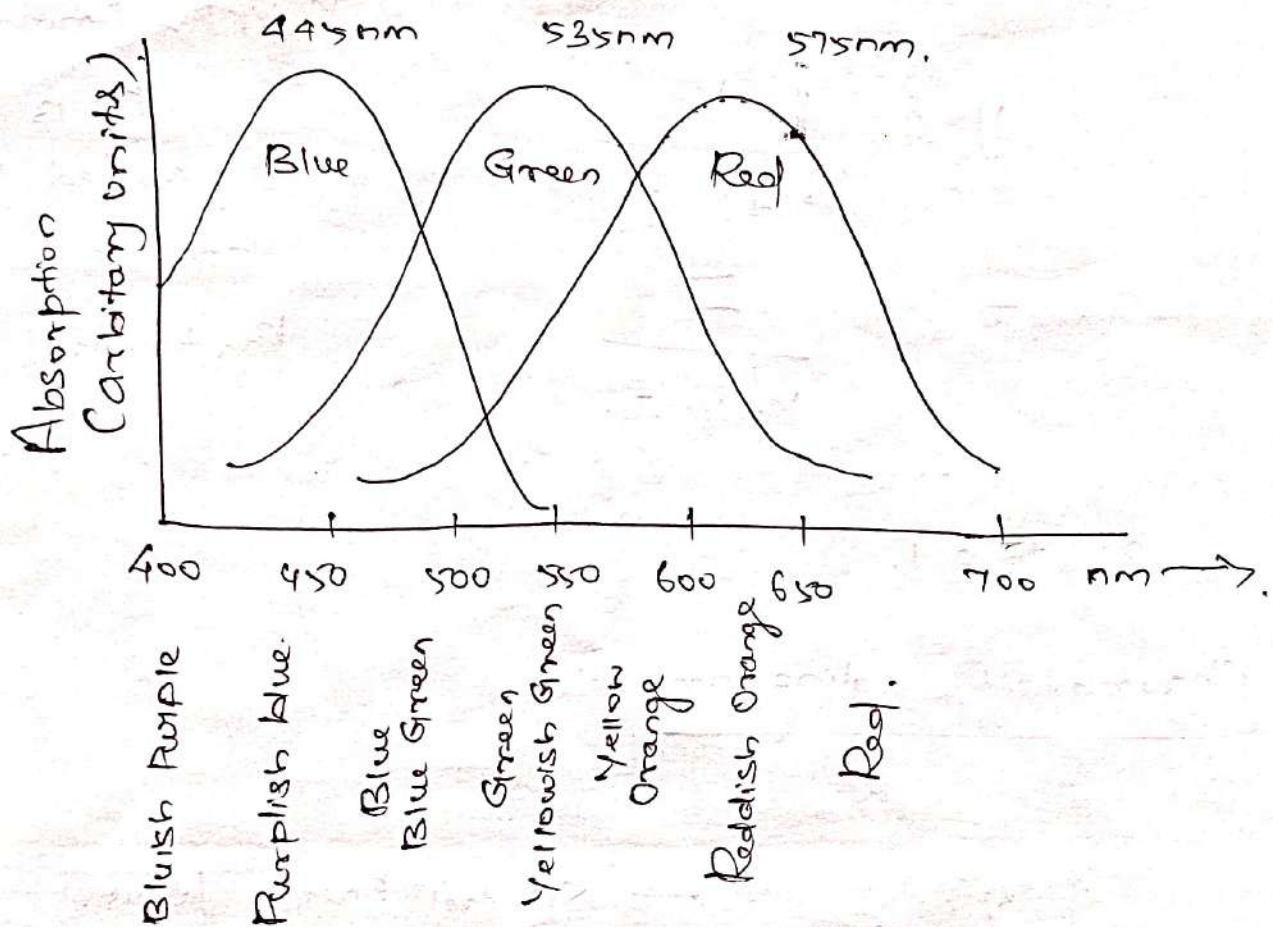 445nm 535nm 575nm.
Absorption
(arbitary units)
Blue Green Red
400 450 500 550 600 650 700 nm
Bluish Purple
Purplish blue.
Blue
Blue Green
Green
Yellowish Green
Yellow
Orange
Reddish Orange
Red.